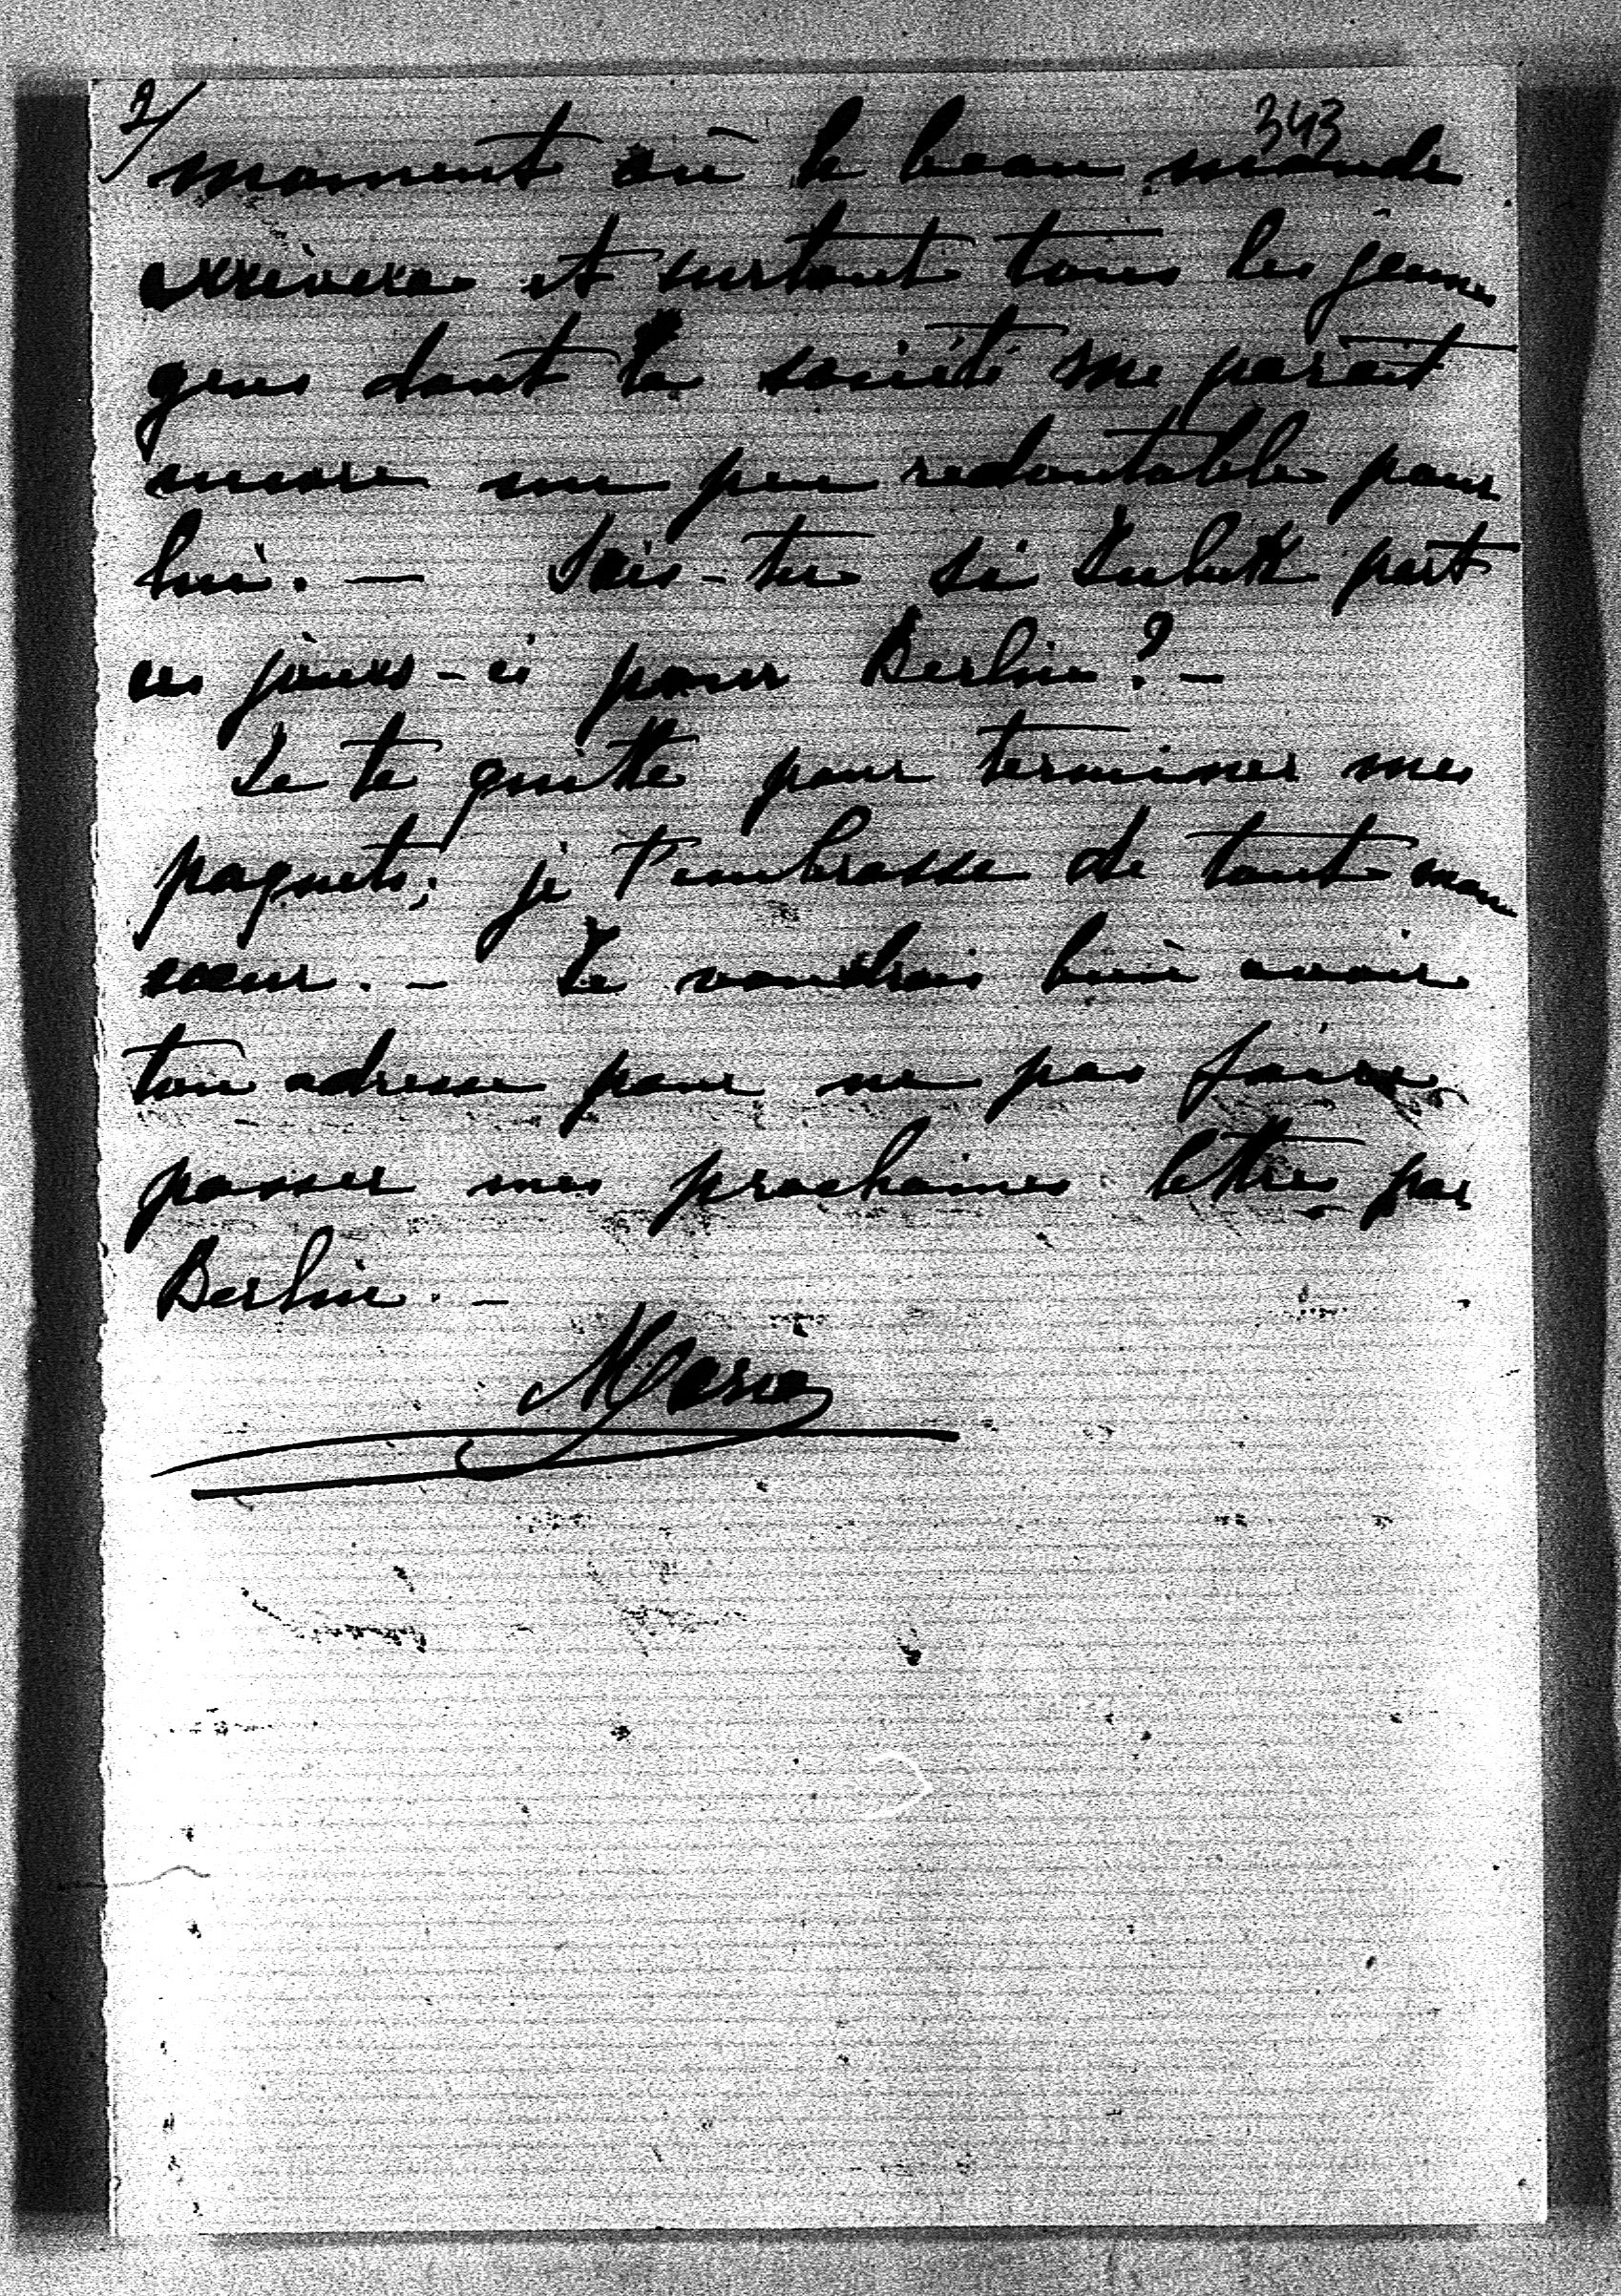 2/
343
moment où le beau monde
arrivera et surtout tous les jeunes
gens dont la société me paraît
encore un peu redoutable pour
lui. — Sais-tu si part
ces jours-ci pour Berlin ? —
Je te quitte pour terminer mes
paquets; je t'embrasse de tout mon
cœur. — Je voudrais bien avoir
ton adresse pour ne pas faire
passer mes prochaines lettres par
Berlin. —
Marie